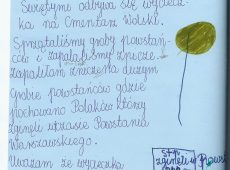 Świętymi odbyła się wyciecz-
ka na Cmentarz Wolski.
Sprzątaliśmy groby powstań-
ców i zapalaliśmy znicze.
Zapaliłam znicze na dużym
grobie powstańców gdzie
pochowano Polaków którzy
zginęli w czasie Powstania
Warszawskiego.
Uważam że wycieczka
zginęli w Pows